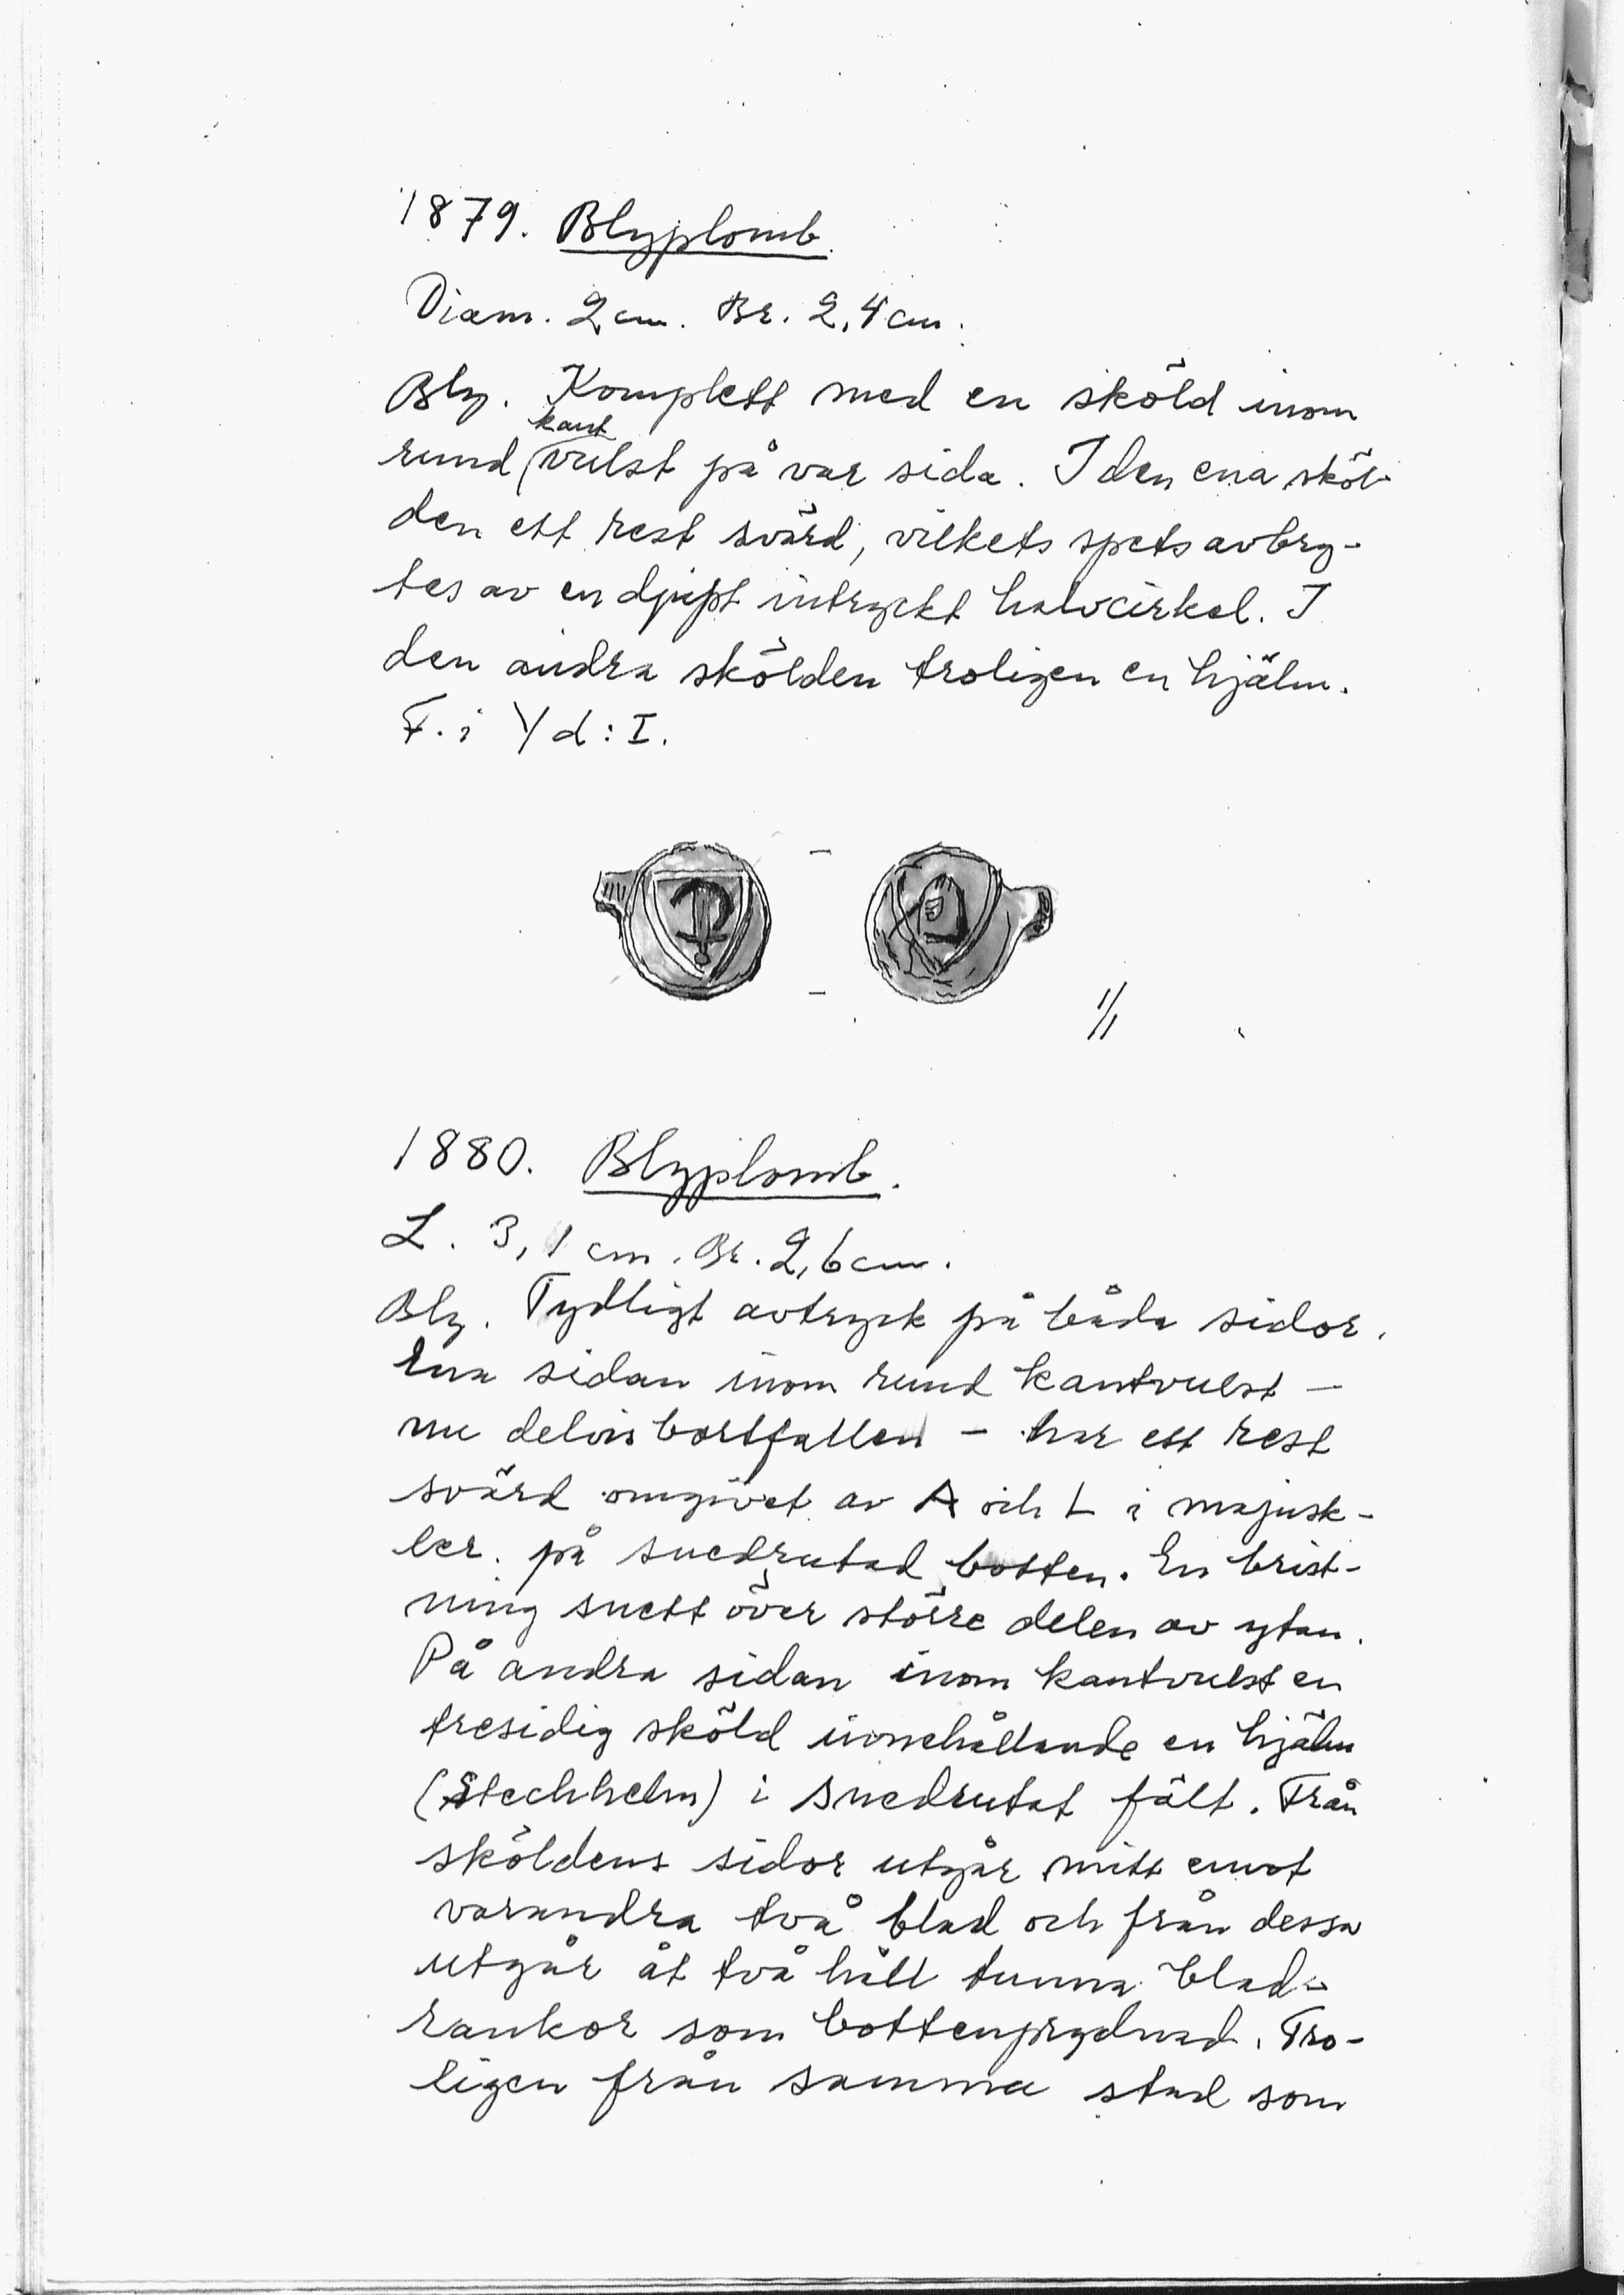 1879. Blyplomb.
Diam. 2 cm. Br. 2,4 cm.
Bly. Komplett med en sköld inom
kant
rund (vulst på var sida. I den ena sköl-
den ett rest svärd, vilkets spets avbry-
tes av en djupt intryckt halvcirkel. I
den andra skölden troligen en hjälm.
F. i Yd: I.
1/1
1880. Blyplomb.
L. 3,1 cm. Br. 2,6 cm.
Bly. Tydligt avtryck på båda sidor.
Ena sidan inom rund kantvulst -
nu delvis bortfallen - har ett rest
svärd omgivet av A och L i majusk-
ler. på snedrutad botten. En brist-
ning snett över större delen av ytan.
På andra sidan inom kantvulst en
tresidig sköld innehållande en hjälm
(Stechhelm) i snedrutat fält. Från
sköldens sidor utgår mitt emot
varandra två blad och från dessa
utgår åt två håll tunna blad-
rankor som bottenprydnad. Tro-
ligen från samma stad som